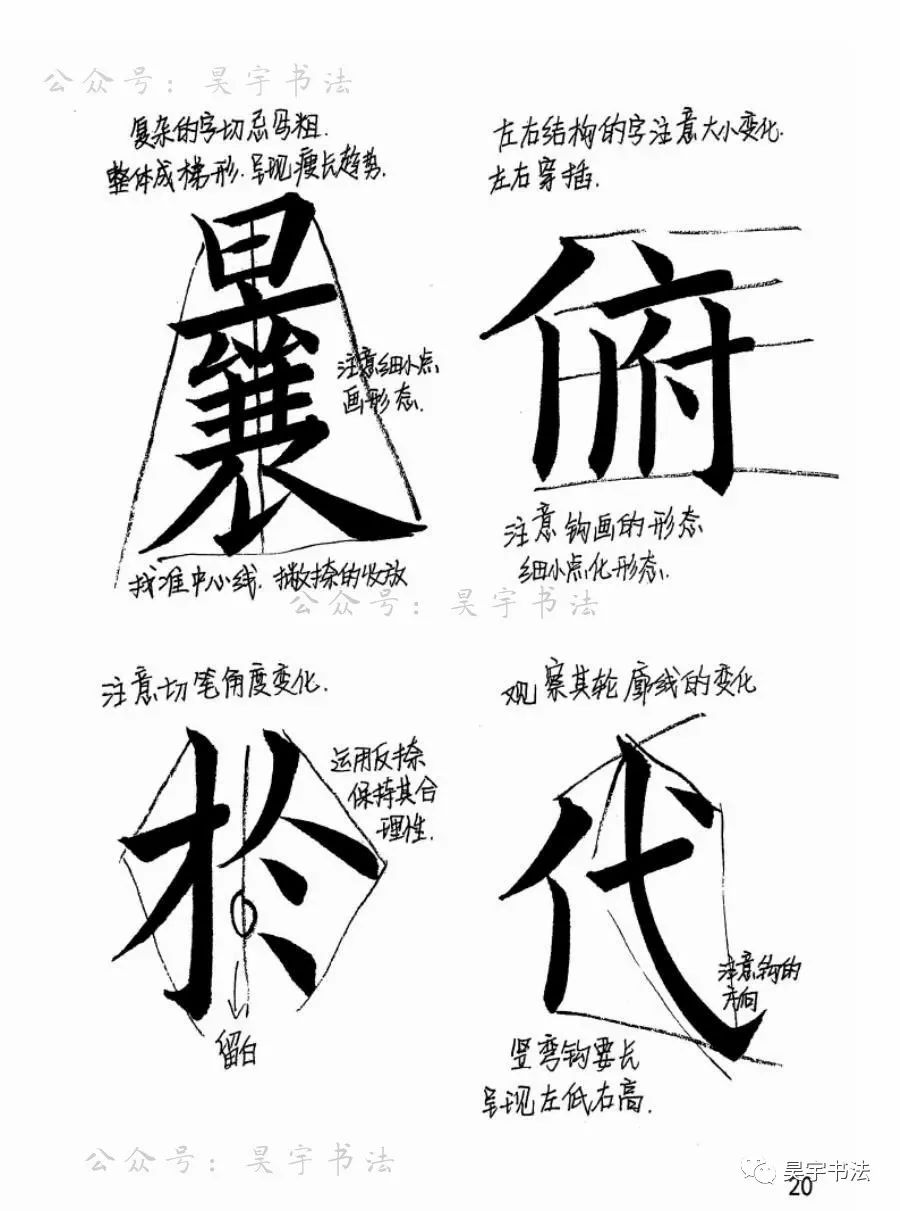 公众号：昊宇书法
复杂的字切忌写粗.
整体成梯形.呈现瘦长趋势.
曩
注意细小点
画形态.
找准中心线.撇捺的收放
左右结构的字注意大小变化.
左右穿插.
俯
注意钩画的形态
细小点化形态.
公众号：昊宇书法
注意切笔角度变化.
於
运用反捺
保持其合
理性.
留白
观察其轮廓线的变化
代
注意钩的
方向
竖弯钩要长
呈现左低右高.
公众号：昊宇书法
昊宇书法
20